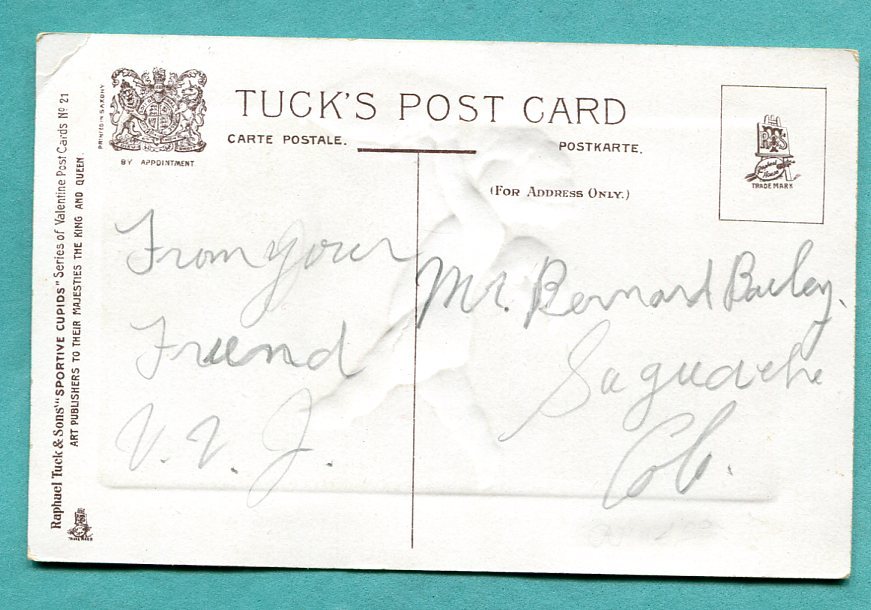 TUCK'S POST CARD
CARTE POSTALE.
POSTKARTE.
(FOR ADDRESS ONLY.)
BY APPOINTMENT
PRINTED IN SAXONY
TRADE MARK
Raphael Tuck & Sons' "SPORTIVE CUPIDS" Series of Valentine Post Cards Nº 21
ART PUBLISHERS TO THEIR MAJESTIES THE KING AND QUEEN.
From your
Friend
V. V. J.
Mr. Bernard Bailey.
Saguache
Colo.